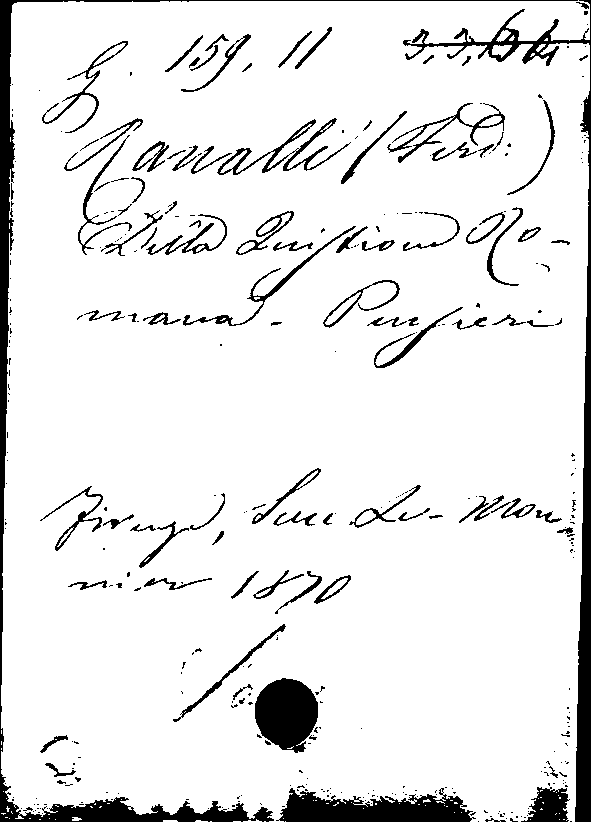 G. 159, 11
Ranalli (Ferd:)
Della Quistione Ro-
mana - Pensieri
Firenze, Succ. Le-Mon-
nier 1870